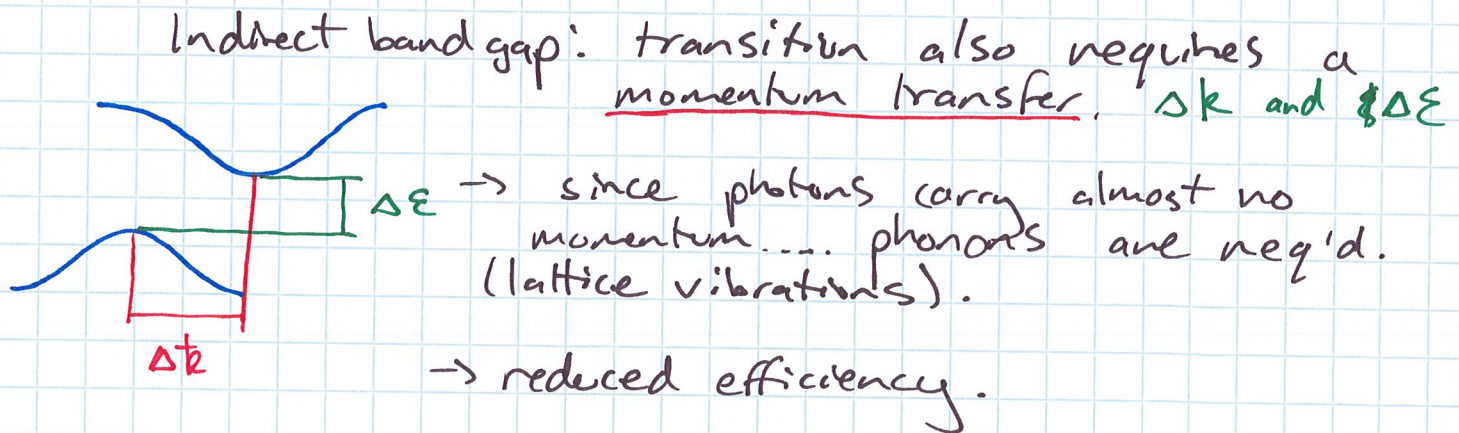 Indirect band gap: transition also requires a
momentum transfer. Δk and Δε
Δε
→ since photons carry almost no
momentum.... phonons are req'd.
(lattice vibrations).
Δk
→ reduced efficiency.